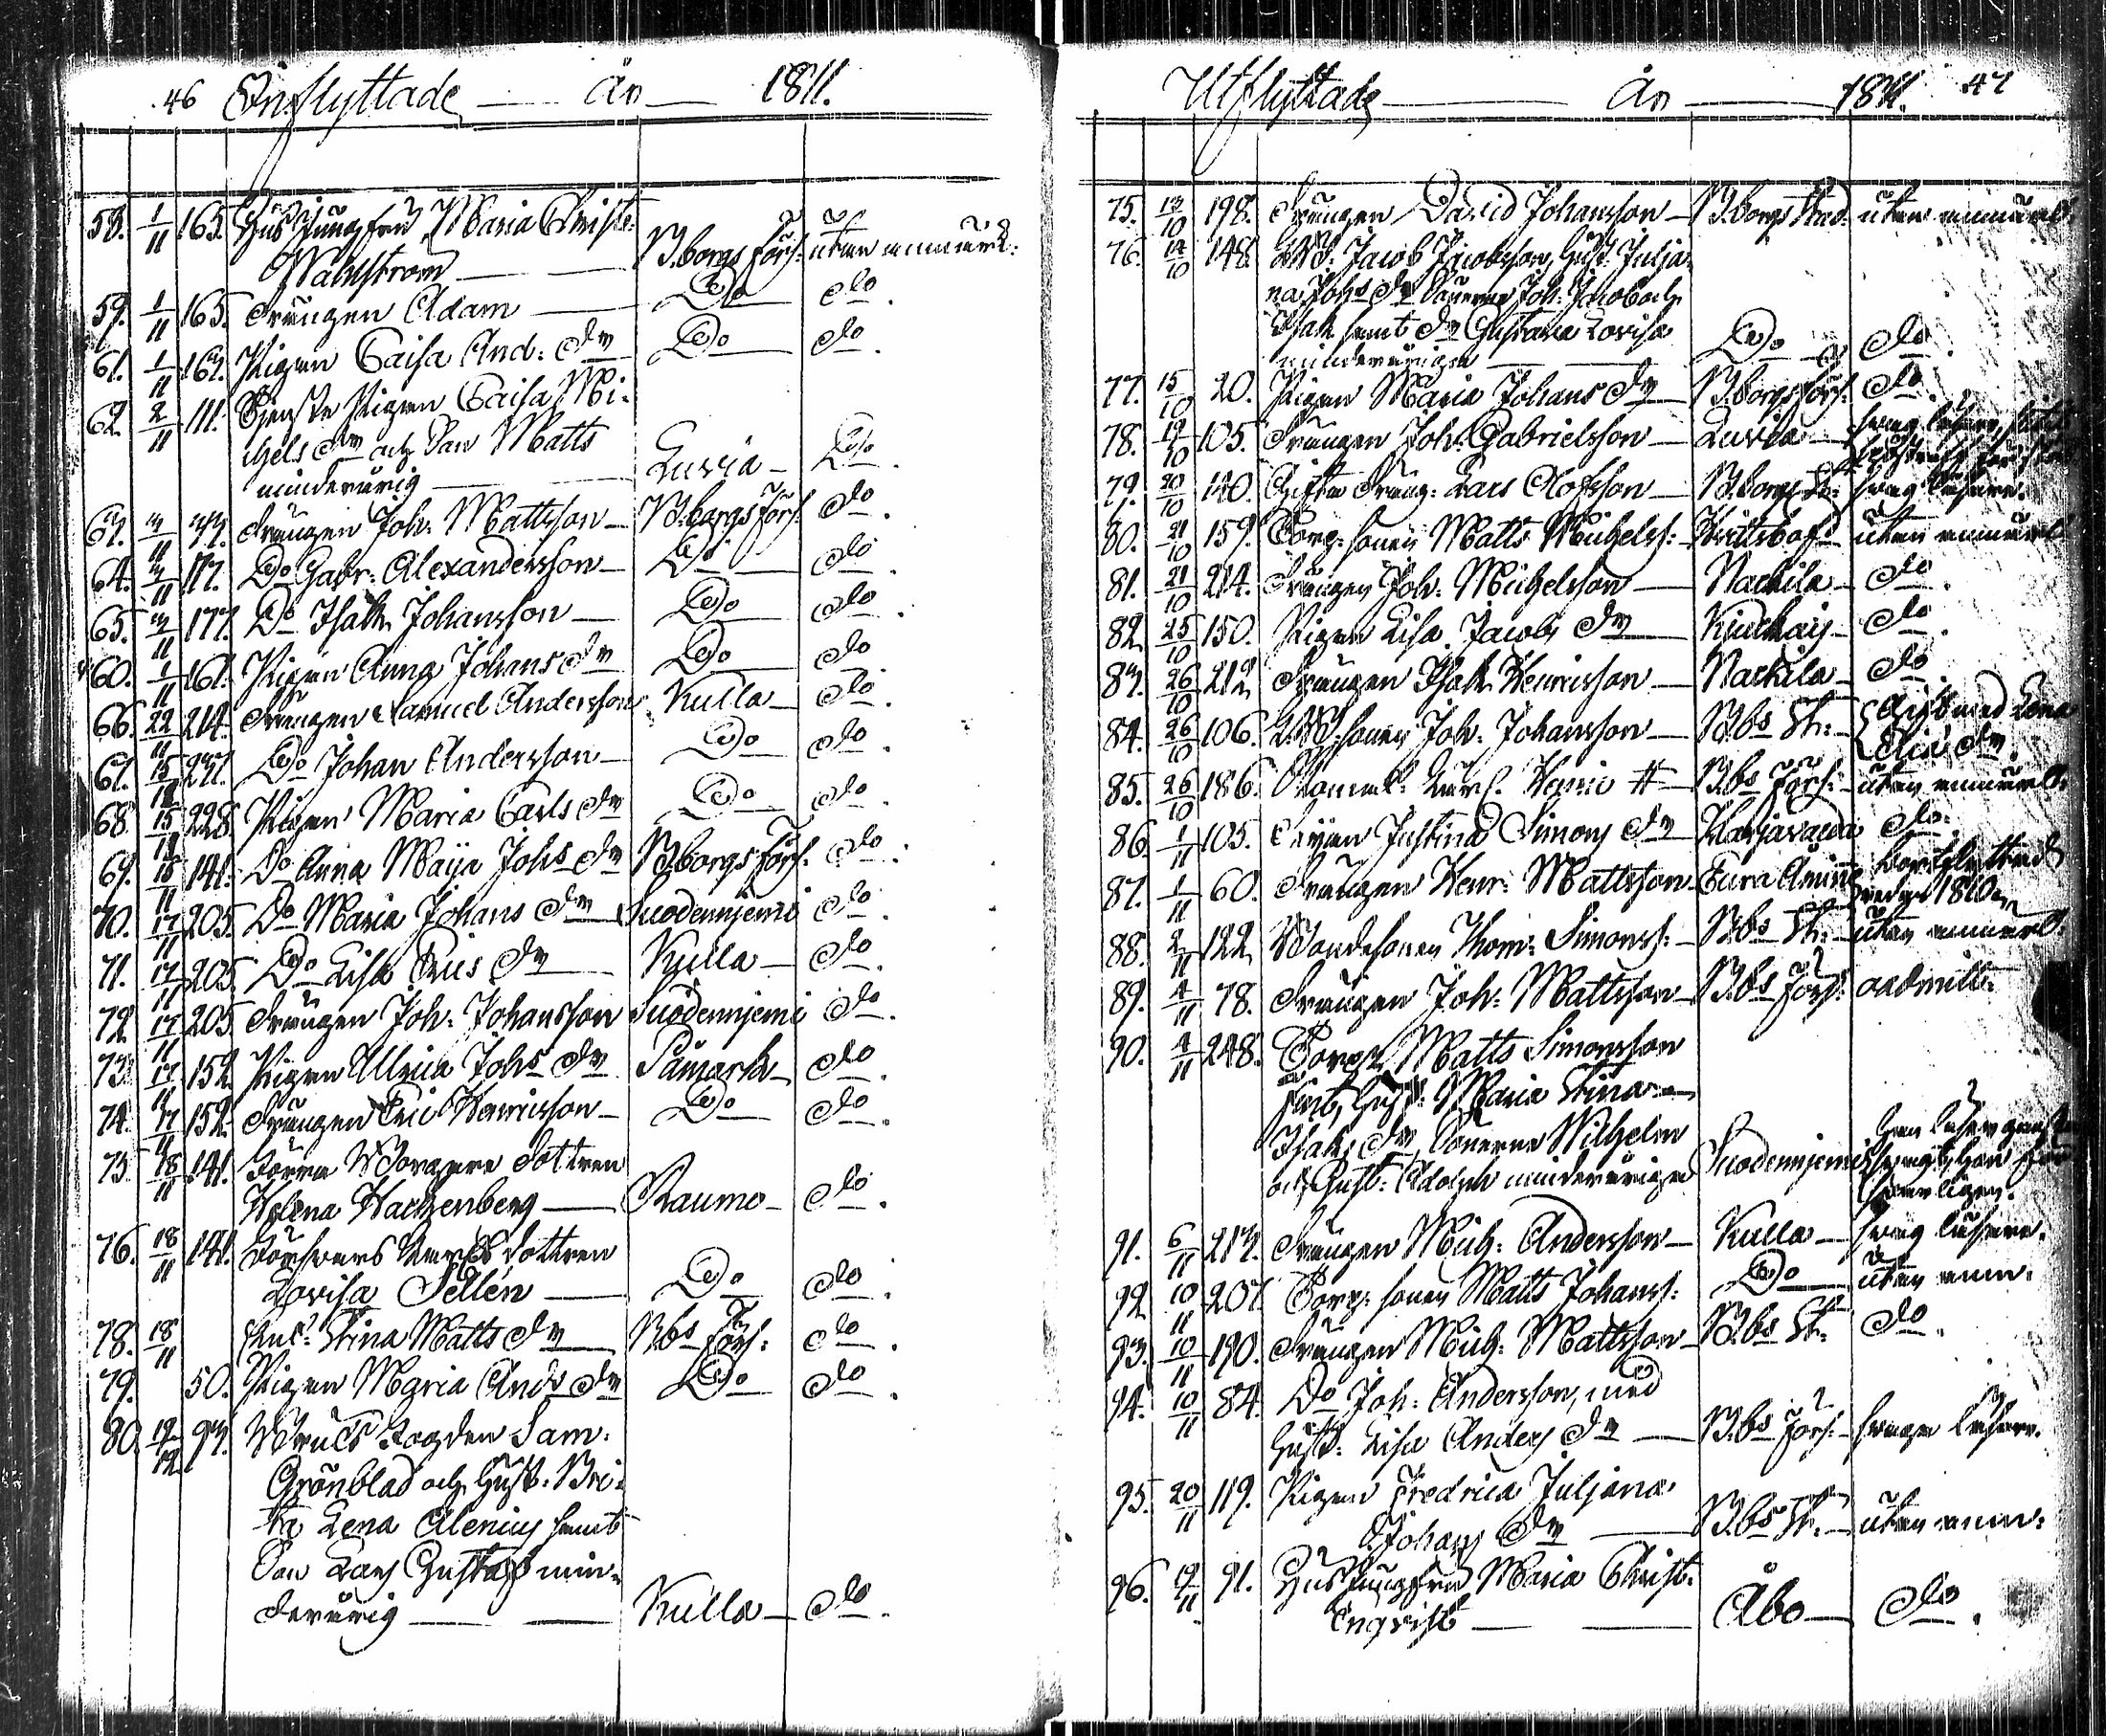 46 Inflyttade År 1811.
58. 1/11 165. Hus Jungfru Maria Christi:
Wahlström B:borgs förs: utan anmärk:
59. 1/11 165. Drängen Adam Do do.
61. 1/11 167. Pigan Caisa And: dr Do do.
62. 2/11 111. Tjenste Pigan Caisa Mi:
chels dr och Son Matts
minderårig Luvia Do.
63. 3/11 Drängen Joh: Mattsson B:borgs förs: do.
64. 3/11 117. Do Gabr: Alexandersson Do do.
65. 3/11 177. Do Isak Johansson Do do.
60. 1/11 161. Pigan Anna Johans dr Do do.
66. 22/11 214. Drängen Samuel Andersson Kulla do.
67. 15/11 Do Johan Andersson Do do.
68. 15/11 228. Pigan Maria Carls dr Do do.
69. 15/11 141. Do Anna Maija Johs dr B:borgs förs: do.
70. 17/11 205. Do Maria Johans dr Suodenniemi do.
71. 17/11 205. Do Lisa dr Kulla do.
72. 17/11 205. Drängen Joh: Johansson Suodenniemi do.
73. 17/11 152. Pigan Ullrica Johs dr Påmark do.
74. 17/11 152. Drängen Eric Henricsson Do do.
75. 18/11 141. dottren
Helena Hachzenberg Raumo do.
76. 18/11 141. dottren
Lovisa Sellén Do do.
78. 18/11 Stina Matts dr B:bs förs: do.
79. 50. Pigan Maria Ands dr Do do.
80. 12/12 93. Bruks Fogden Sam:
Grönblad och Hust: Bri:
ta Lena Alenius samt
Son Lars Gustaf min:
derårig Kulla do.
Utflyttade År 1811. 47
75. 13/10 198. Drängen David Johansson B:borgs Stad: utan anmärk:
76. 14/10 148. Jacob Jacobsson, Hust: Julja:
na Johs dr Sönerne Joh: Jacob och
Isak samt dr Gustava Lovisa
minderåriga Do do.
77. 15/10 20. Pigan Maria Johans dr B:borgs förs: do.
78. 19/10 105. Drängen Joh: Gabrielsson Luvia svag läsare,
79. 20/10 140. Gifte Dräng: Lars Olofsson B:borgs St: svag läsare.
80. 21/10 159. Torp: sonen Matts Michelss: utan anmärk:
81. 21/10 214. Drängen Joh: Michelsson Nackila do.
82. 25/10 150. Pigan Lisa Jacobs dr do.
83. 26/10 212. Drängen Isak Henricsson Nackila do.
84. 26/10 106. sonen Joh: Johansson B:bs St: Gift med Lena
dr.
85. 26/10 186. Henric B:bs förs: utan anmärk:
86. 1/11 105. Pigan Justina Simons dr Harjavalda do.
87. 1/11 60. Drängen Henr: Mattsson Eura bortflyttad
redan 1810.
88. 2/11 122. Bondesonen Thom: Simonss: B:bs St: utan anmärk:
89. 4/11 78. Drängen Joh: Mattsson B:bs förs: oadmitt:
90. 4/11 248. Torp: Matts Simonsson
samt Hust: Maria Stina
Isaks dr, Sönerne Wilhelm
och Gust: Adolph minderåriga Suodenniemi
91. 6/11 213. Drängen Mich: Andersson Kulla svag läsare.
92. 10/11 207. Torp: sonen Matts Johanss: Do utan anm:
93. 10/11 190. Drängen Mich: Mattsson B:bs St: do.
94. 10/11 84. Do Joh: Andersson, med
Hust: Lisa Anders dr B:bs förs: svaga läsare.
95. 20/11 119. Pigan Fredrica Juljana
Johans dr B:bs St: utan anm:
96. 19/11 91. Hus Jungfru Maria Christ:
Enqvist Åbo do.